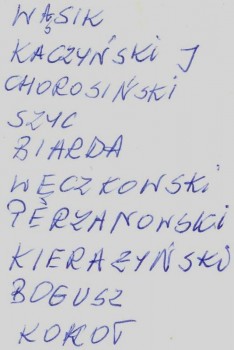 WĄSIK
KACZYŃSKI J
CHOROSIŃSKI
SZYC
BIARDA
WĘCZKOWSKI
PERZANOWSKI
KIERAZYŃSKI
BOGUSZ
KOKOT